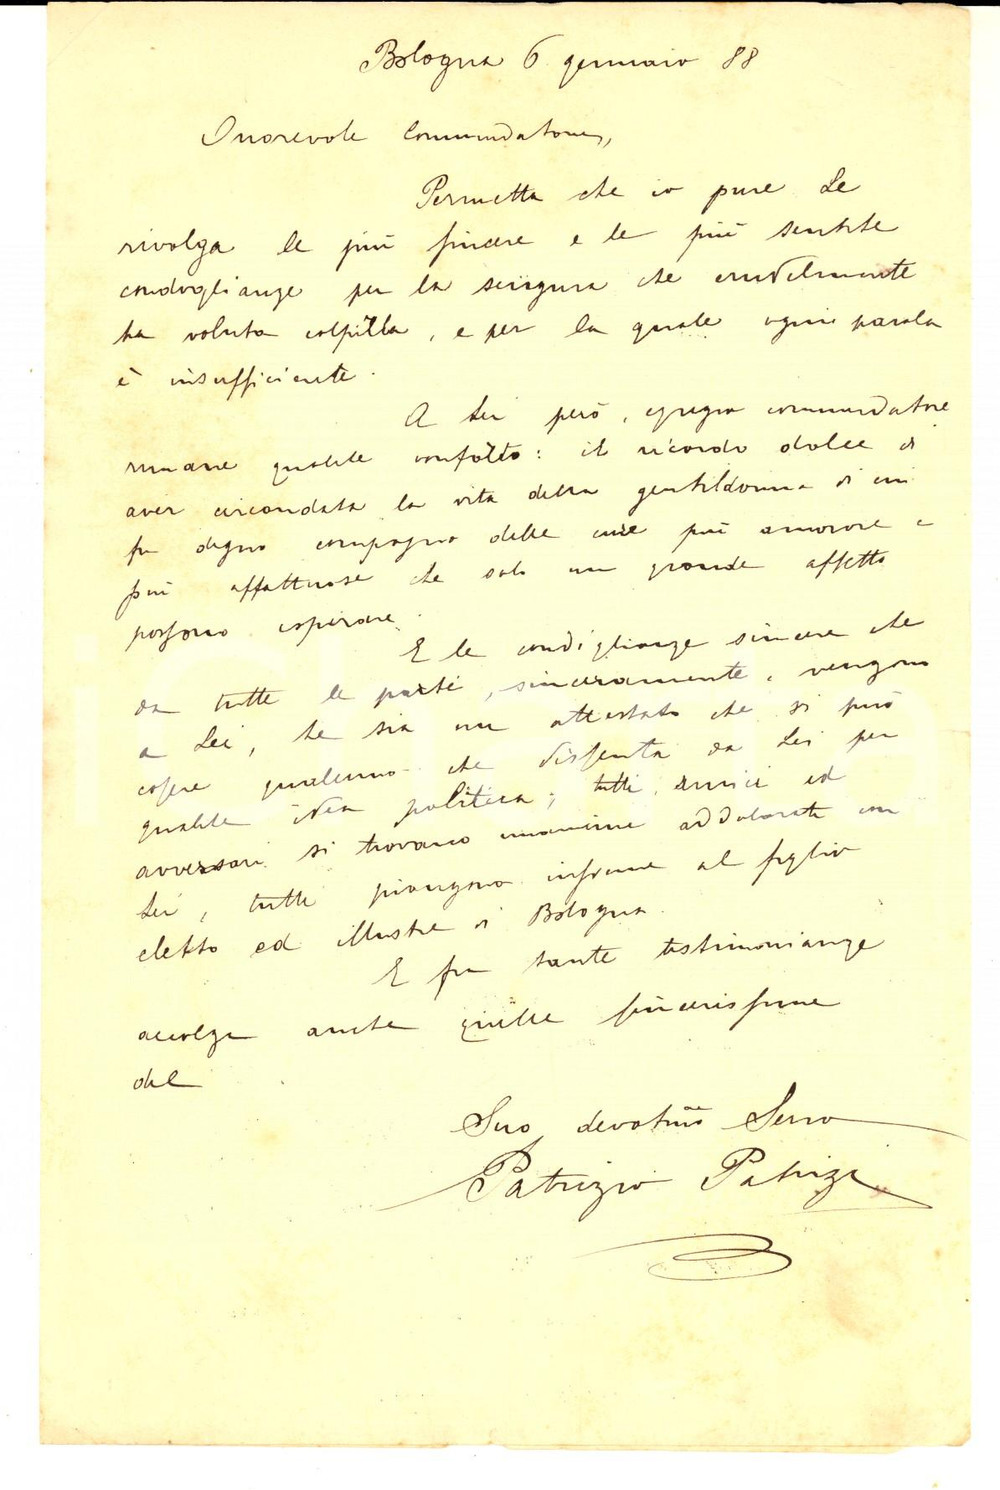 Bologna 6 gennaio 88
Onorevole Commendatore,
Permetta che io pure Le
rivolga le più sincere e le più sentite
condoglianze per la sciagura che crudelmente
ha voluto colpirla, e per la quale ogni parola
è insufficiente.
A Lei però, egregio commendatore
rimane qualche conforto: il ricordo dolce di
aver circondata la vita della gentildonna di cui
fu degno compagno delle cure più amorose e
più affettuose che solo un grande affetto
possono ispirare.
E le condoglianze sincere che
da tutte le parti, sinceramente, vengono
a Lei, le sia un attestato che si può
essere qualcuno che dissenta da Lei per
qualche idea politica; tutti, amici ed
avversari si trovano unanimi addolorati con
Lei, tutti piangono insieme al figlio
eletto ed illustre di Bologna.
E fra tante testimonianze
accolga anche quelle sincerissime
del
Suo devotmo Servo
Patrizio Patrizi